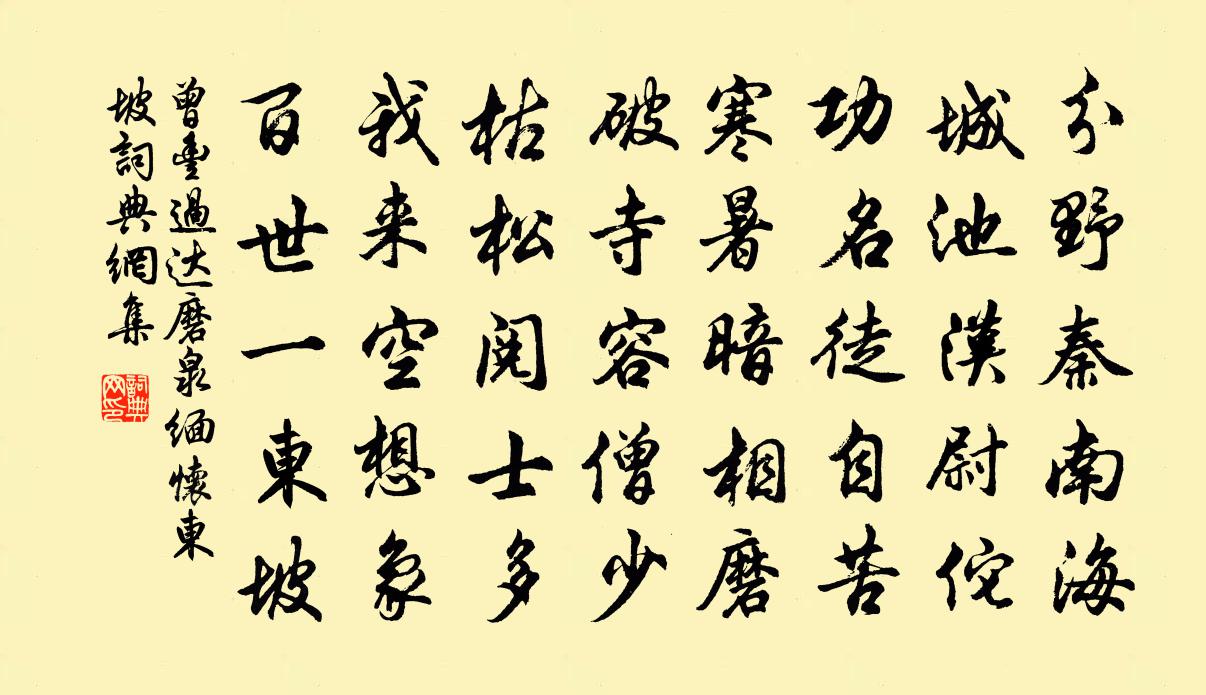 分野秦南海
城池漢尉佗
功名徒自苦
寒暑暗相磨
破寺容僧少
枯松閱士多
我来空想象
百世一東坡
曾豊過达磨泉缅懷東
坡詞典網集
詞典
网印